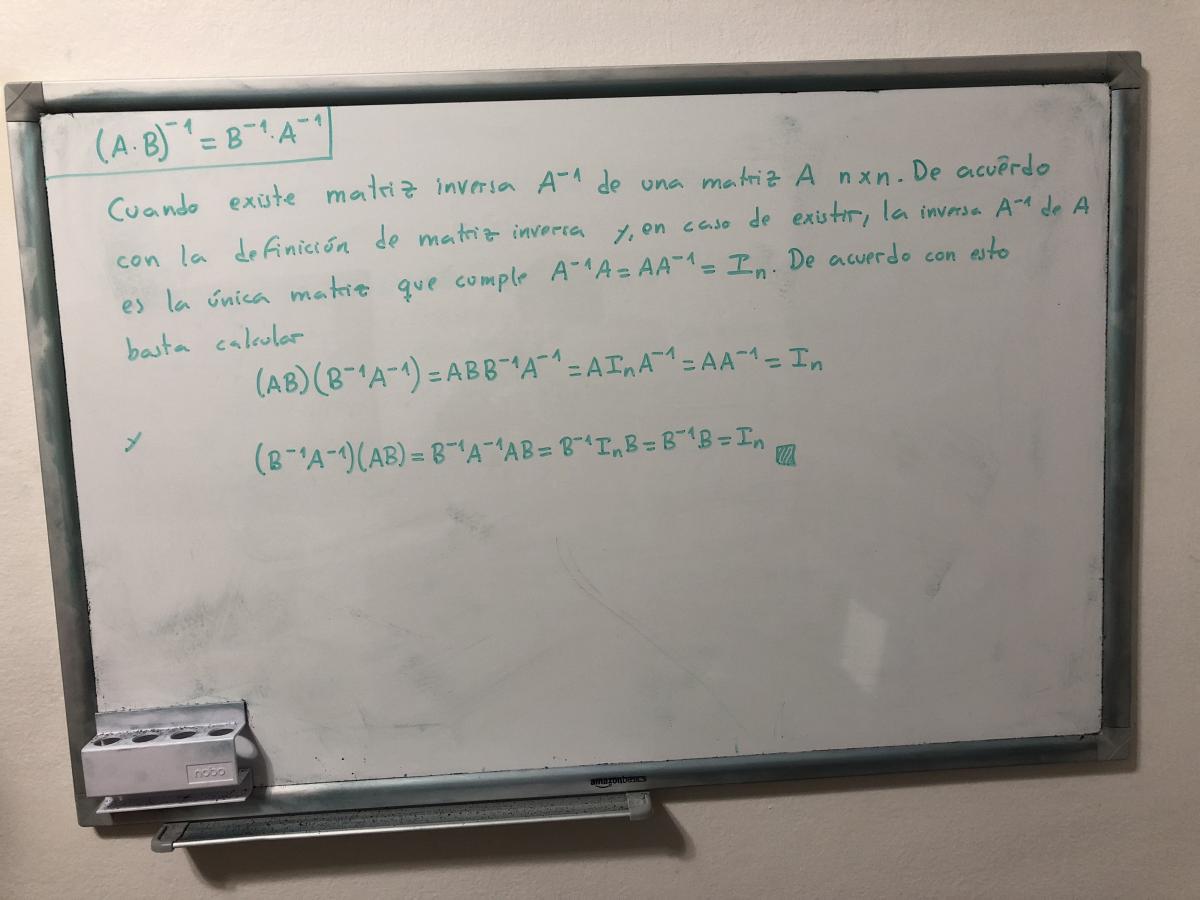 (A·B)⁻¹ = B⁻¹·A⁻¹
Cuando existe matriz inversa A⁻¹ de una matriz A n×n. De acuêrdo
con la definición de matriz inversa y, en caso de existir, la inversa A⁻¹ de A
es la única matriz que cumple A⁻¹A = AA⁻¹ = Iₙ. De acuerdo con esto
basta calcular
(AB)(B⁻¹A⁻¹) = ABB⁻¹A⁻¹ = AIₙA⁻¹ = AA⁻¹ = Iₙ
y
(B⁻¹A⁻¹)(AB) = B⁻¹A⁻¹AB = B⁻¹IₙB = B⁻¹B = Iₙ
nobo
amazonbasics